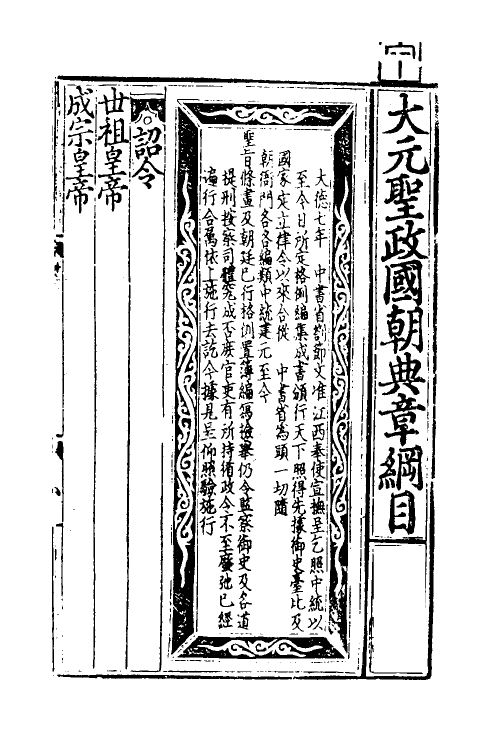 大元聖政國朝典章綱目
大德七年 中書省劄節文准江西奉使宣撫呈乞照中統以
至今日所定格例編集成書頒行天下照得先據御史臺比及
國家定立律令以來合從 中書省為頭一切隨
朝衙門各各編類中統建元至今
聖旨條畫及朝廷已行格例置簿編寫檢舉仍令監察御史及各道
提刑按察司體究成否庶官吏有所持循政令不至廢弛已經
遍行合屬依上施行去訖今據見呈仰照驗施行
詔令
世祖皇帝
成宗皇帝